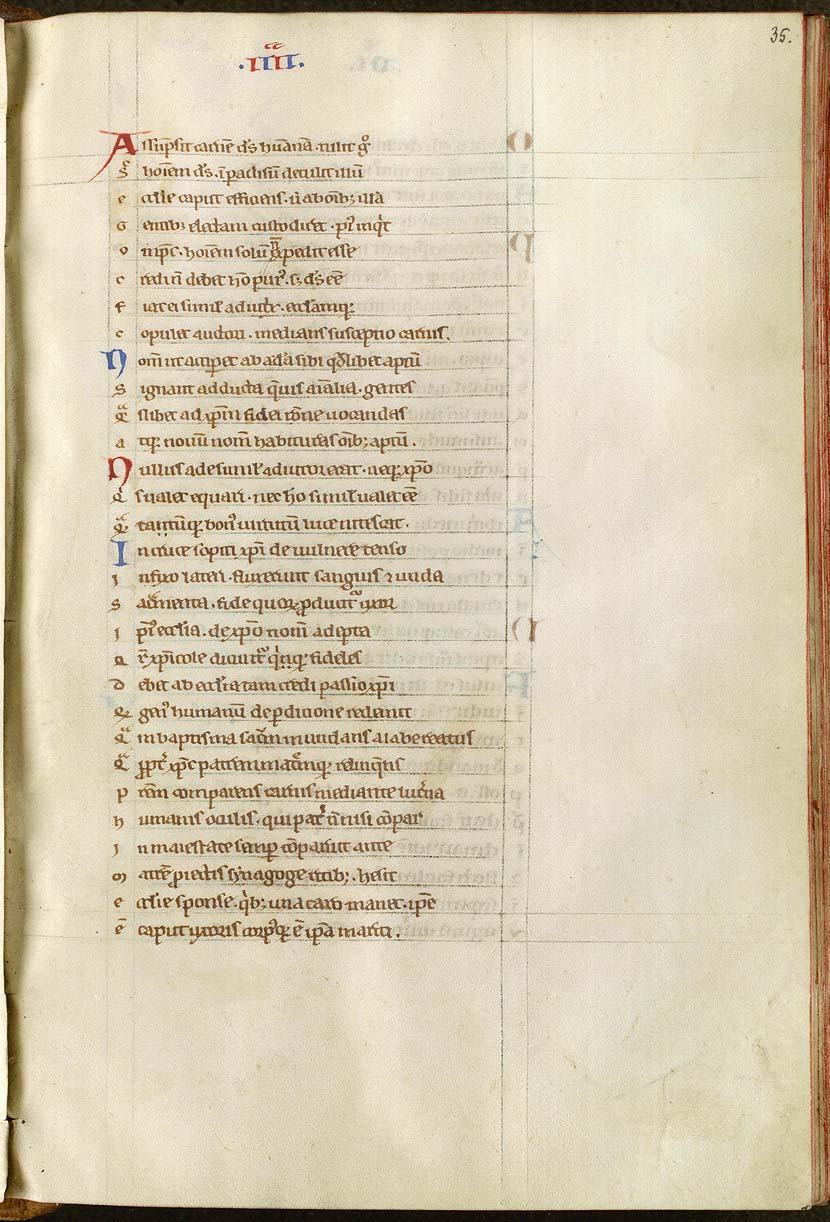 35.
.IIII.
Assūpsit carnē dſ̄ humanā. tulit gͦ
hoīem dſ̄. ī paͣdisū detulit illū
ecclie caput efficiens. ū ab oīb; illā
Gentib; electam custodiret. pͥ inqͥt
hoīem solū expedit esse
Credi ū debet hō purꝰ. s; dſ̄ eē
Fiat ei simile adiutōr. eccl̄amq;
Copulet auctori. medians susceptio carnis.
Nom̄ ut acciperet ab adā sibi qͦdlibet aptū
Signant adducta qͣuis aīalia. gentes
Qͣslibet ad xp̄m fidei rōne uocandas
atq; nouū nom̄ habituras oīb; aptū.
Nullus ade simil adiutor erat. neq; xp̄o
Qͥs ualet equari. nec hō simil ualet eē
tantūq; bonꝰ uirtutū luce nitescat.
In cruce sopiti xp̄i de uulnere tenso
Infixo lateri. fluxerunt sanguis ⁊ unda
Sacͣmenta. fide quoꝝ ꝓducitͬ uxor
Ip̄iꝰ ecclesia. de xp̄o nom̄ adepta
xp̄icole dicuntͬ qͥcūq; fideles
Debet ab eccl̄ia tam credi passio xp̄i
Qͣ genꝰ humanū de ꝑdicione redemit
Qͣ m baptisma sacͣm mundans a labe reatus
Qͣ ꝓpt̄ xp̄c patrem matͬmq; relinquens
Prem comparens carnis mediante lucͬna
humanis oculis. qui patͥ n̄ nisi cōpar
In maiestate semꝑ cōparuit ante
Matre ꝓ iectis synagoge ritib;. hesit
Ecclīe sponse. qͥb; una caro manet. ip̄e
Ē caput uxoris corpꝰq; ē ip̄a mariti.